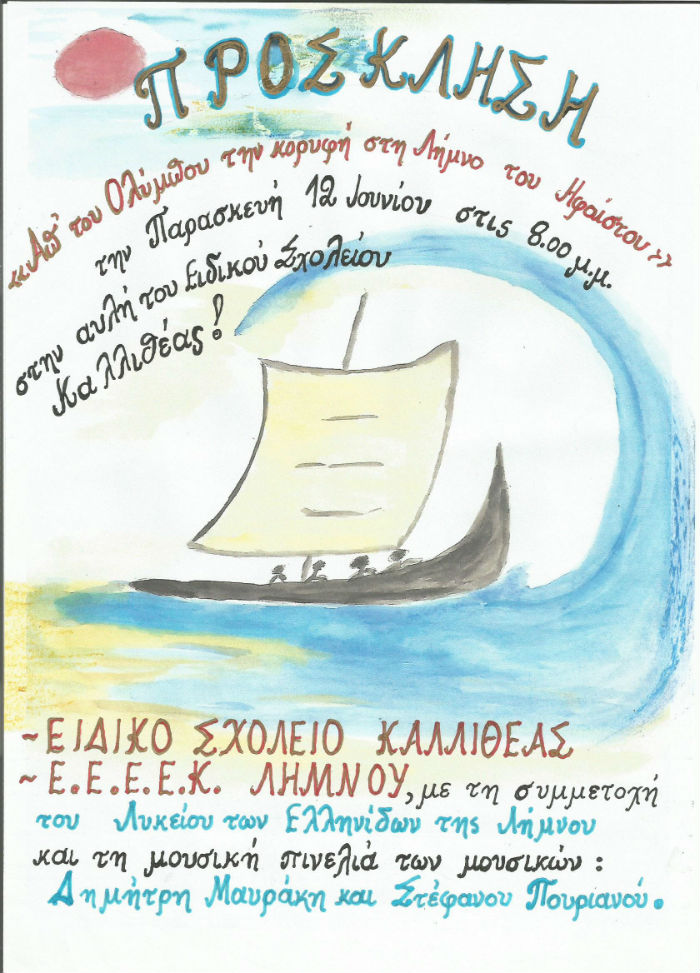 ΠΡΟΣΚΛΗΣΗ
«Απ' του Ολύμπου την κορυφή στη Λήμνο του Ηφαίστου»
την Παρασκευή 12 Ιουνίου στις 8.00 μ.μ.
στην αυλή του Ειδικού Σχολείου
Καλλιθέας!
~ΕΙΔΙΚΟ ΣΧΟΛΕΙΟ ΚΑΛΛΙΘΕΑΣ
~Ε.Ε.Ε.Ε.Κ. ΛΗΜΝΟΥ, με τη συμμετοχή
του Λυκείου των Ελληνίδων της Λήμνου
και τη μουσική πινελιά των μουσικών:
Δημήτρη Μαυράκη και Στέφανου Πουριανού.